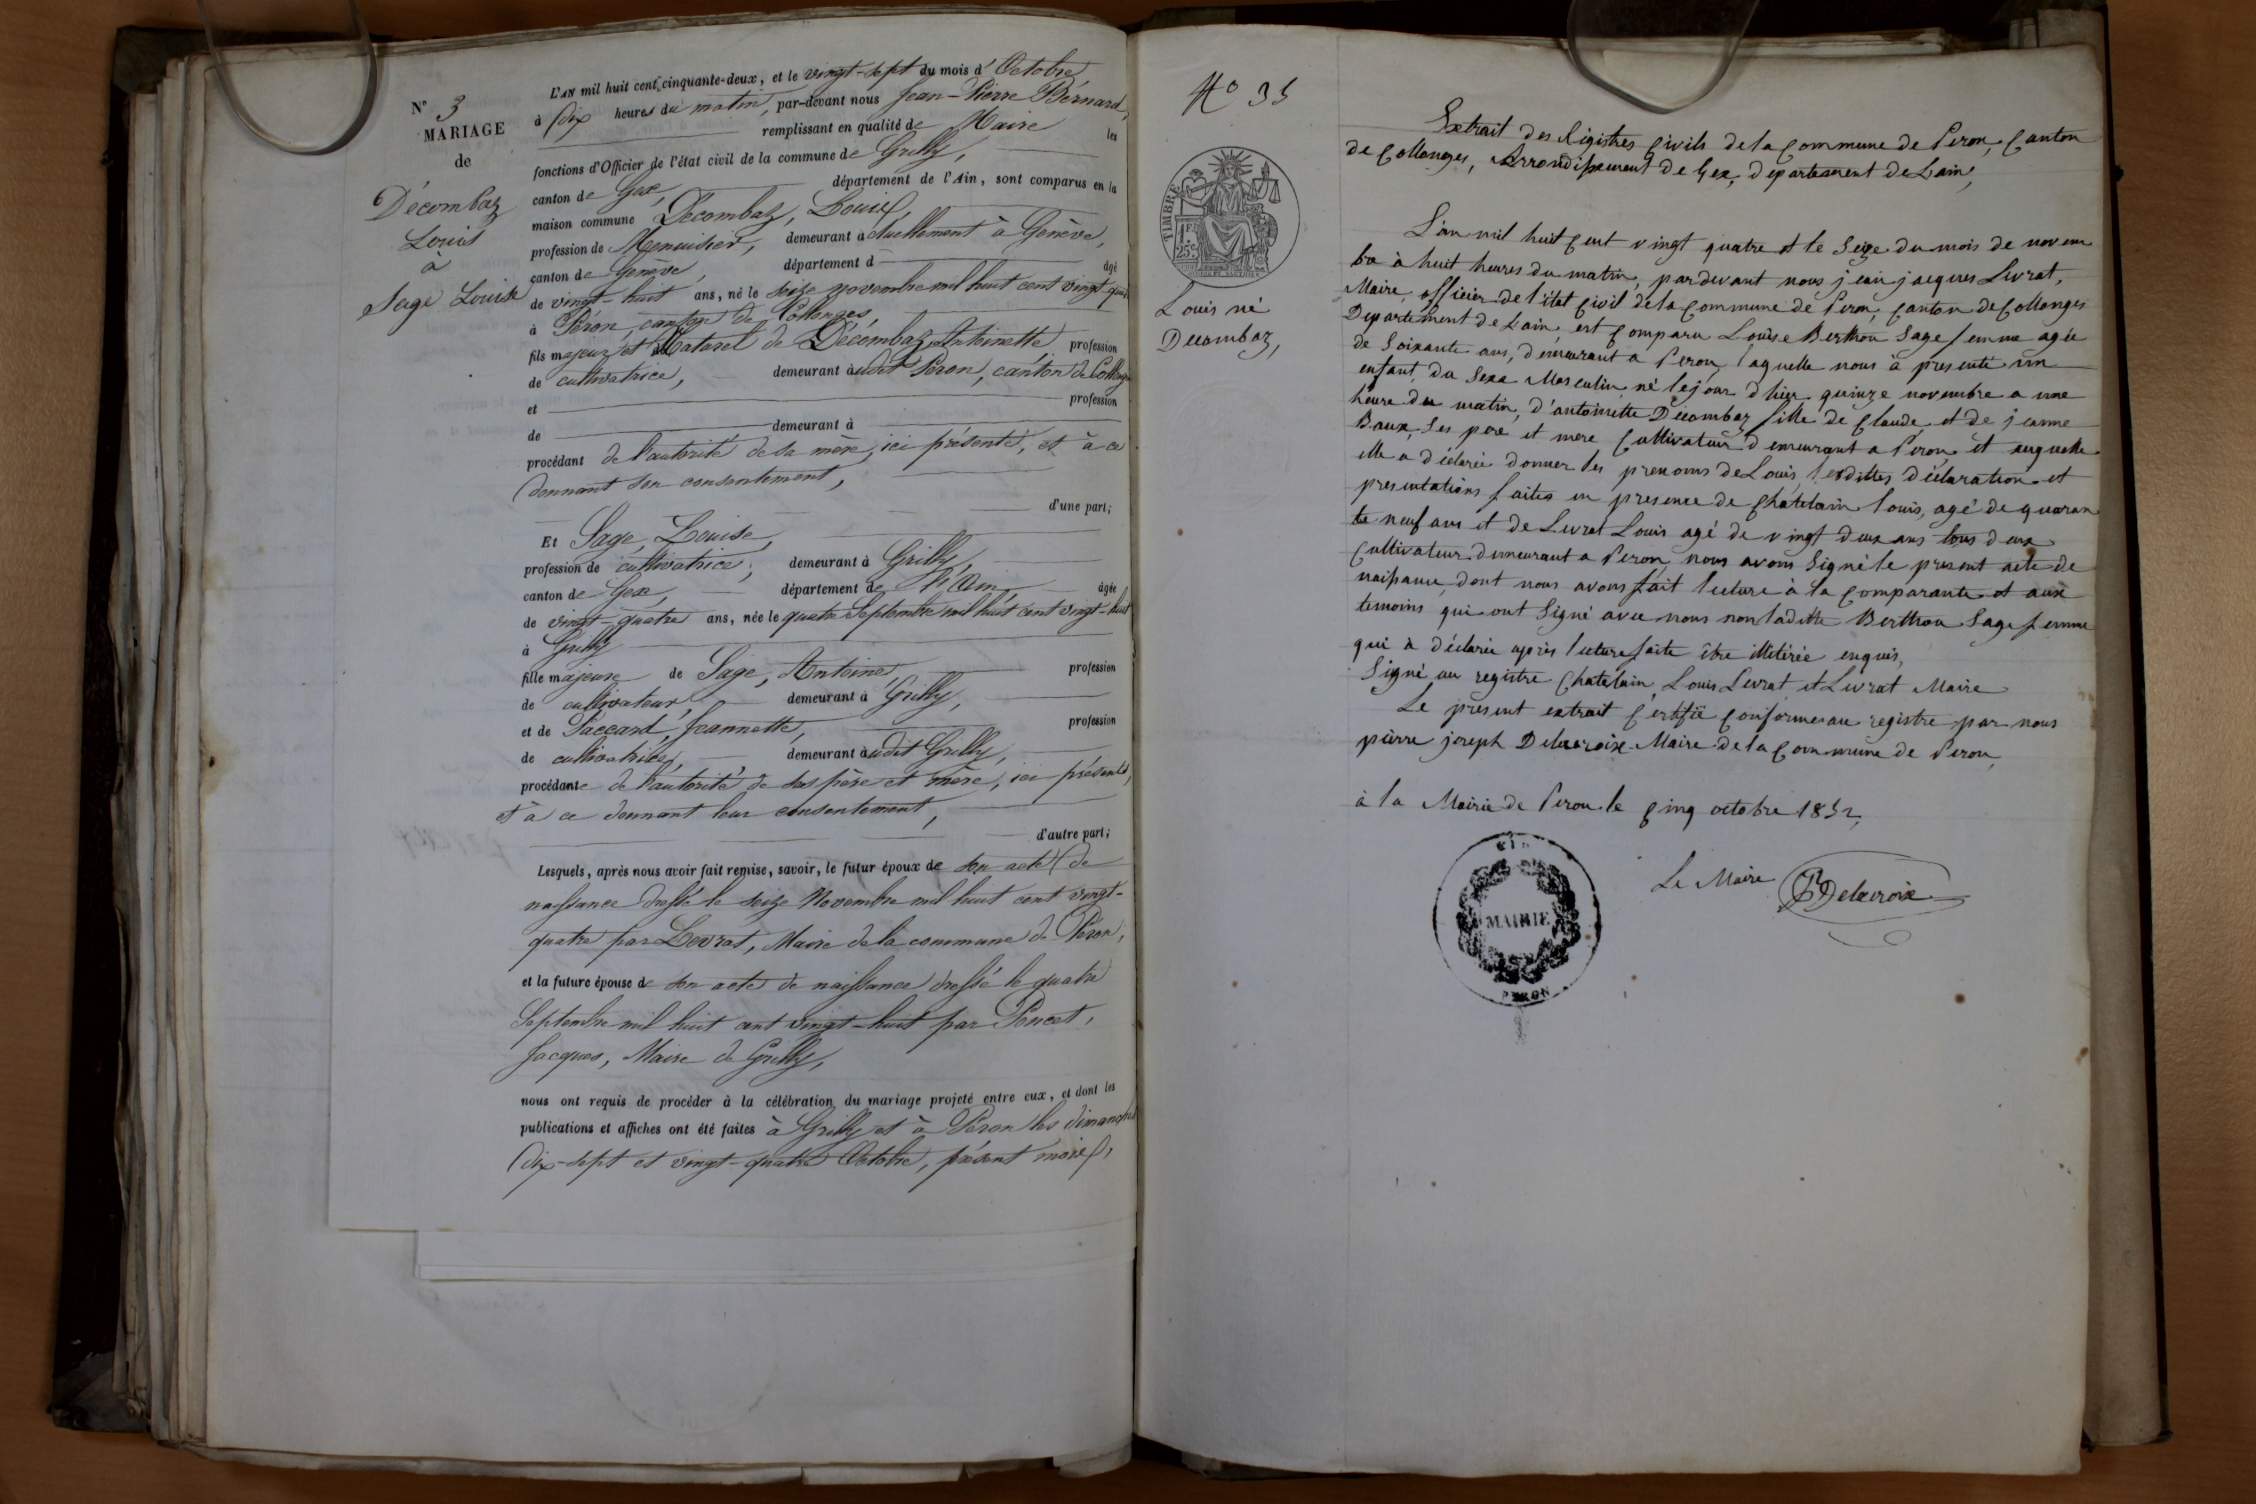 N° 3
MARIAGE
de
Décombaz
Louis
à
Sage Louise
L'AN mil huit cent cinquante-deux, et le vingt-sept du mois d'Octobre
à dix heures du matin, par-devant nous Jean-Pierre Bérnard,
remplissant en qualité de Maire les
fonctions d'Officier de l'état civil de la commune de Grilly,
canton de Gex, département de l'Ain, sont comparus en la
maison commune Décombaz, Louis,
profession de Menuisier, demeurant actuellement à Genève,
canton de Genève, département d âgé
de vingt-huit ans, né le seize novembre mil huit cent vingt-quatre
à Péron, canton de Collonges,
fils majeur et Naturel de Décombaz Antoinette profession
de cultivatrice, demeurant audit Péron, canton de Collonges
et profession
de demeurant à
procédant de l'autorité de sa mère, ici présente, et à ce
donnant son consentement,
d'une part;
Et Sage, Louise,
profession de cultivatrice, demeurant à Grilly,
canton de Gex, département de l'Ain âgée
de vingt-quatre ans, née le quatre Septembre mil huit cent vingt-huit
à Grilly
fille majeure de Sage, Antoine profession
de cultivateur, demeurant à Grilly,
et de Paccard, Jeannette, profession
de cultivatrice, demeurant audit Grilly,
procédante de l'autorité de ses père et mère, ici présents,
et à ce donnant leur consentement,
d'autre part;
Lesquels, après nous avoir fait remise, savoir, le futur époux de son acte de
naissance dressé le seize Novembre mil huit cent vingt-
quatre par Levrat, Maire de la commune de Péron,
et la future épouse de son acte de naissance dressé le quatre
Septembre mil huit cent vingt-huit par Poncet,
Jacques, Maire de Grilly,
nous ont requis de procéder à la célébration du mariage projeté entre eux, et dont les
publications et affiches ont été faites à Grilly et à Péron les dimanches
dix-sept et vingt-quatre Octobre, présent mois,
N° 35
TIMBRE
1F
25c
Louis né
Decombaz,
Extrait des Régistres Civils de la Commune de Peron, Canton
de Collonges, Arrondissement de Gex, departement de Lain,
L'an mil huit Cent vingt quatre et le Seize du mois de novem
bre à huit heures du matin, pardevant nous jean jacques Livrat,
Maire officier de l'état Civil de la Commune de Peron, Canton de Collonges
Departement de Lain, est Comparu Louise Berthou Sage femme agée
de Soixante ans, demeurant a Peron, laquelle nous à presenté un
enfant du Sexe Masculin né le jour d'hier quinze novembre a une
heure du matin, d'antoinette Decombaz fille de Claude et de jeanne
Baux, Ses pere et mere Cultivateurs demeurant a Peron et auquelle
elle a déclarée donner les prenoms de Louis, lesdittes déclaration et
presentations faites en presence de Chatelain louis, agé de quaran
te neuf ans et de Livrat Louis agé de vingt deux ans tous deux
Cultivateur demeurant a Peron, nous avons Signé le present acte de
naissance, dont nous avons fait lecture à la Comparante et aux
temoins qui ont Signé avec nous non laditte Berthou Sage femme
qui à déclarée après lecture faite être illitérée enquis,
Signé au registre Chatelain, Louis Livrat et Livrat Maire
Le present extrait Certifié Conforme au registre par nous
pierre joseph Delacroix Maire de la Commune de Peron,
à la Mairie de Peron le Cinq octobre 1852,
Le Maire PDelacroix
MAIRIE
PERON